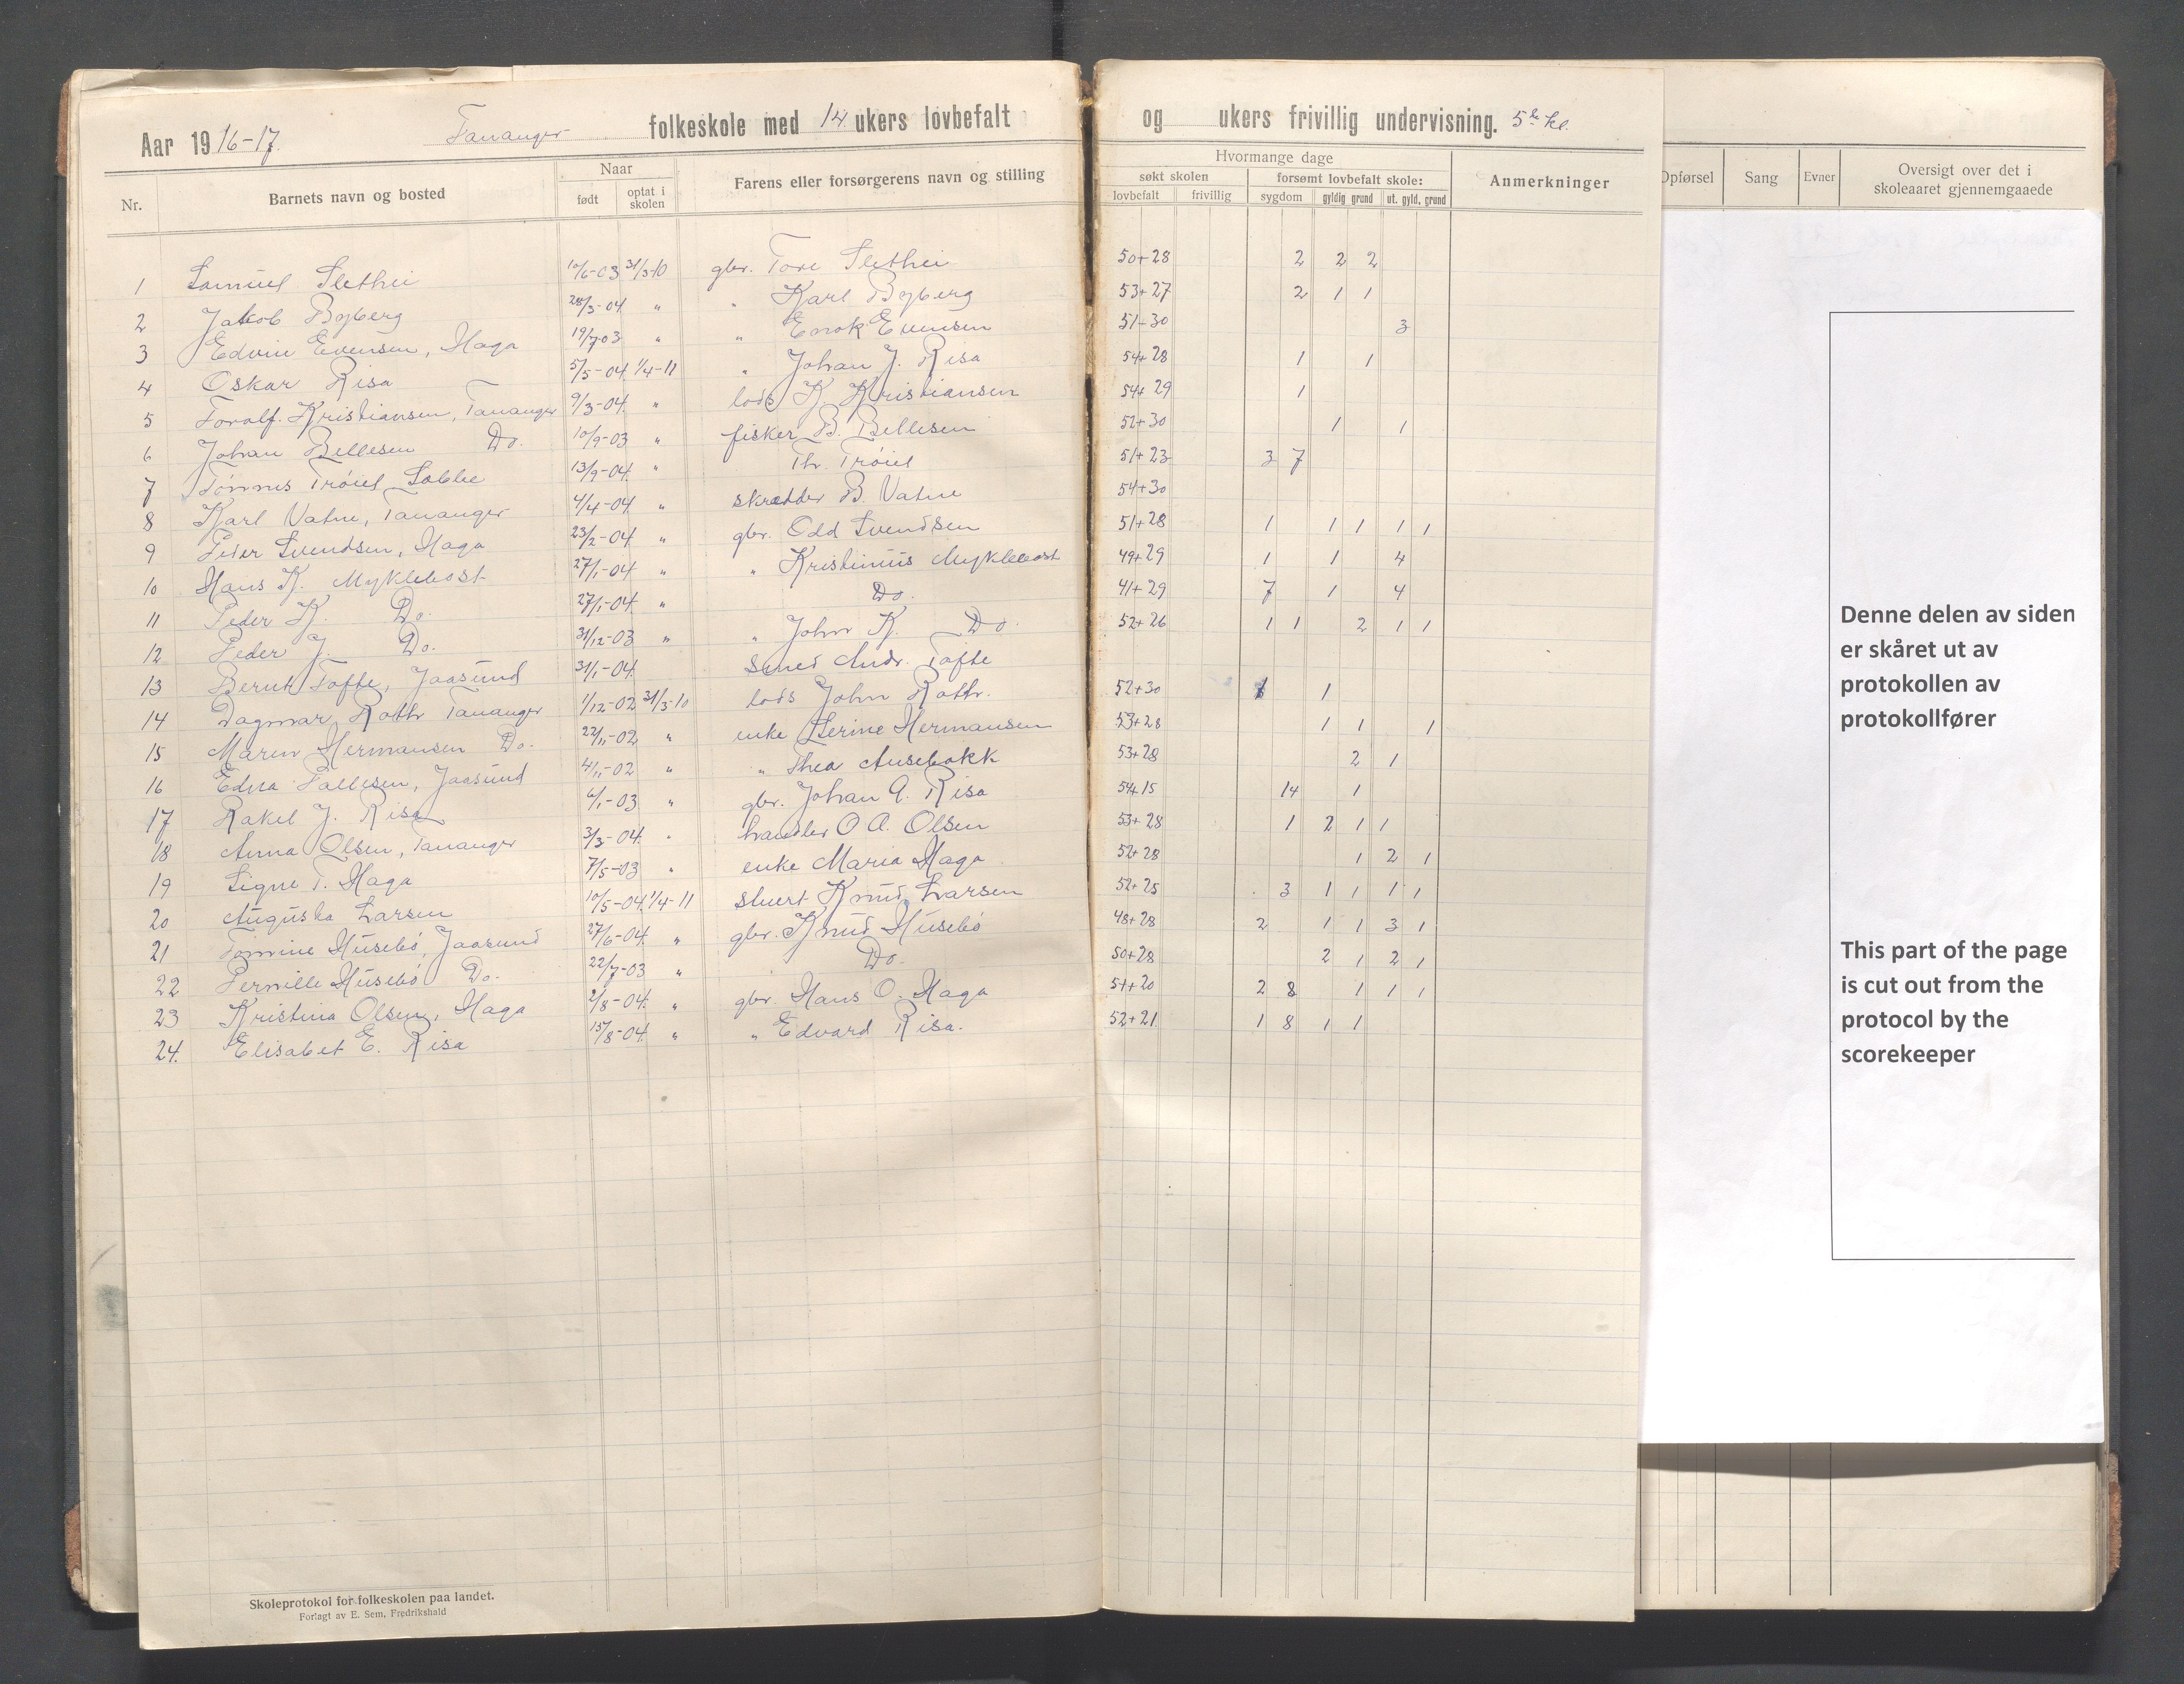 Aar 1916-17. Tananger folkeskole med 14 ukers lovbefalt og ukers frivillig undervisning. 5te kl.
Nr. Barnets navn og bosted Naar født optat i skolen Farens eller forsørgerens navn og stilling Hvormange dage søkt skolen lovbefalt frivillig forsømt lovbefalt skole: sygdom gyldig grund ut. gyld. grund Anmerkninger Opførsel Sang Evner Oversigt over det i skoleaaret gjennemgaaede
1 Samuel Slethei 10/6-03 31/3-10 gbr. Tore Slethei 50+28 2 2 2
2 Jakob Byberg 28/3-04 " " Karl Byberg 53+27 2 1 1
3 Edvin Evensen, Haga 19/7 03 " " Enok Evensen 51-30 3
4 Oskar Risa 5/5-04. 1/4-11 " Johan J. Risa 54+28 1 1
5 Toralf Kristiansen, Tananger 9/3-04. " lods K Kristiansen 54+29 1
6 Johan Bellesen Do. 10/9-03 " fisker B. Bellesen 52+30 1 1
7 Tønnes Trøiel 13/9-04. " Th. Trøiel 51+23 3 7
8 Karl Vatne, Tananger 4/4-04. " skrædder B. Vatne 54+30
9 Peder Svendsen, Haga 23/2-04 " gbr. Odd Svendsen 51+28 1 1 1 1 1
10 Hans K. Myklebost 27/1-04. " " Kristinius Myklebost 49+29 1 1 4
11 Peder K. Do. 27/1-04. " Do. 41+29 7 1 4
12 Peder J. Do. 31/12-03 " " John K. Do. 52+26 1 1 2 1 1
13 Bernt Tofte, Jaasund 31/1-04. Smed Andr. Tofte
14 Dagmar Roth Tananger 1/12-02 31/3-10 lods John Roth. 52+30 1 1
15 Maren Hermansen Do. 22/11-02 " enke Serine Hermansen 53+28 1 1 1
16 Edna Tallesen, Jaasund 4/11-02 " " Thea 53+28 2 1
17 Rakel J. Risa 6/1-03 " gbr. Johan A. Risa 54+15 14 1
18 Anna Olsen, Tananger 3/3-04. " handler O A. Olsen 53+28 1 2 1 1
19 Signe T. Haga 7/5-03 " enke Maria Haga 52+28 1 2 1
20 Augusta Larsen 10/5-04. 1/4-11 stuert Knud Larsen 52+25 3 1 1 1 1
21 Tomine Husebö, Jaasund 27/6-04. " gbr. Knud Husebö 48+28 2 1 1 3 1
22 Pernille Husebö Do. 22/7-03 " Do. 50+28 2 1 2 1
23 Kristina Olsen, Haga 2/8-04. " gbr. Hans O. Haga 51+20 2 8 1 1 1
24. Elisabet E. Risa 15/8-04. " " Edvard Risa. 52+21 1 8 1 1
Denne delen av siden
er skåret ut av
protokollen av
protokollfører
This part of the page
is cut out from the
protocol by the
scorekeeper
Skoleprotokol for folkeskolen paa landet.
Forlagt av E. Sem, Fredrikshald